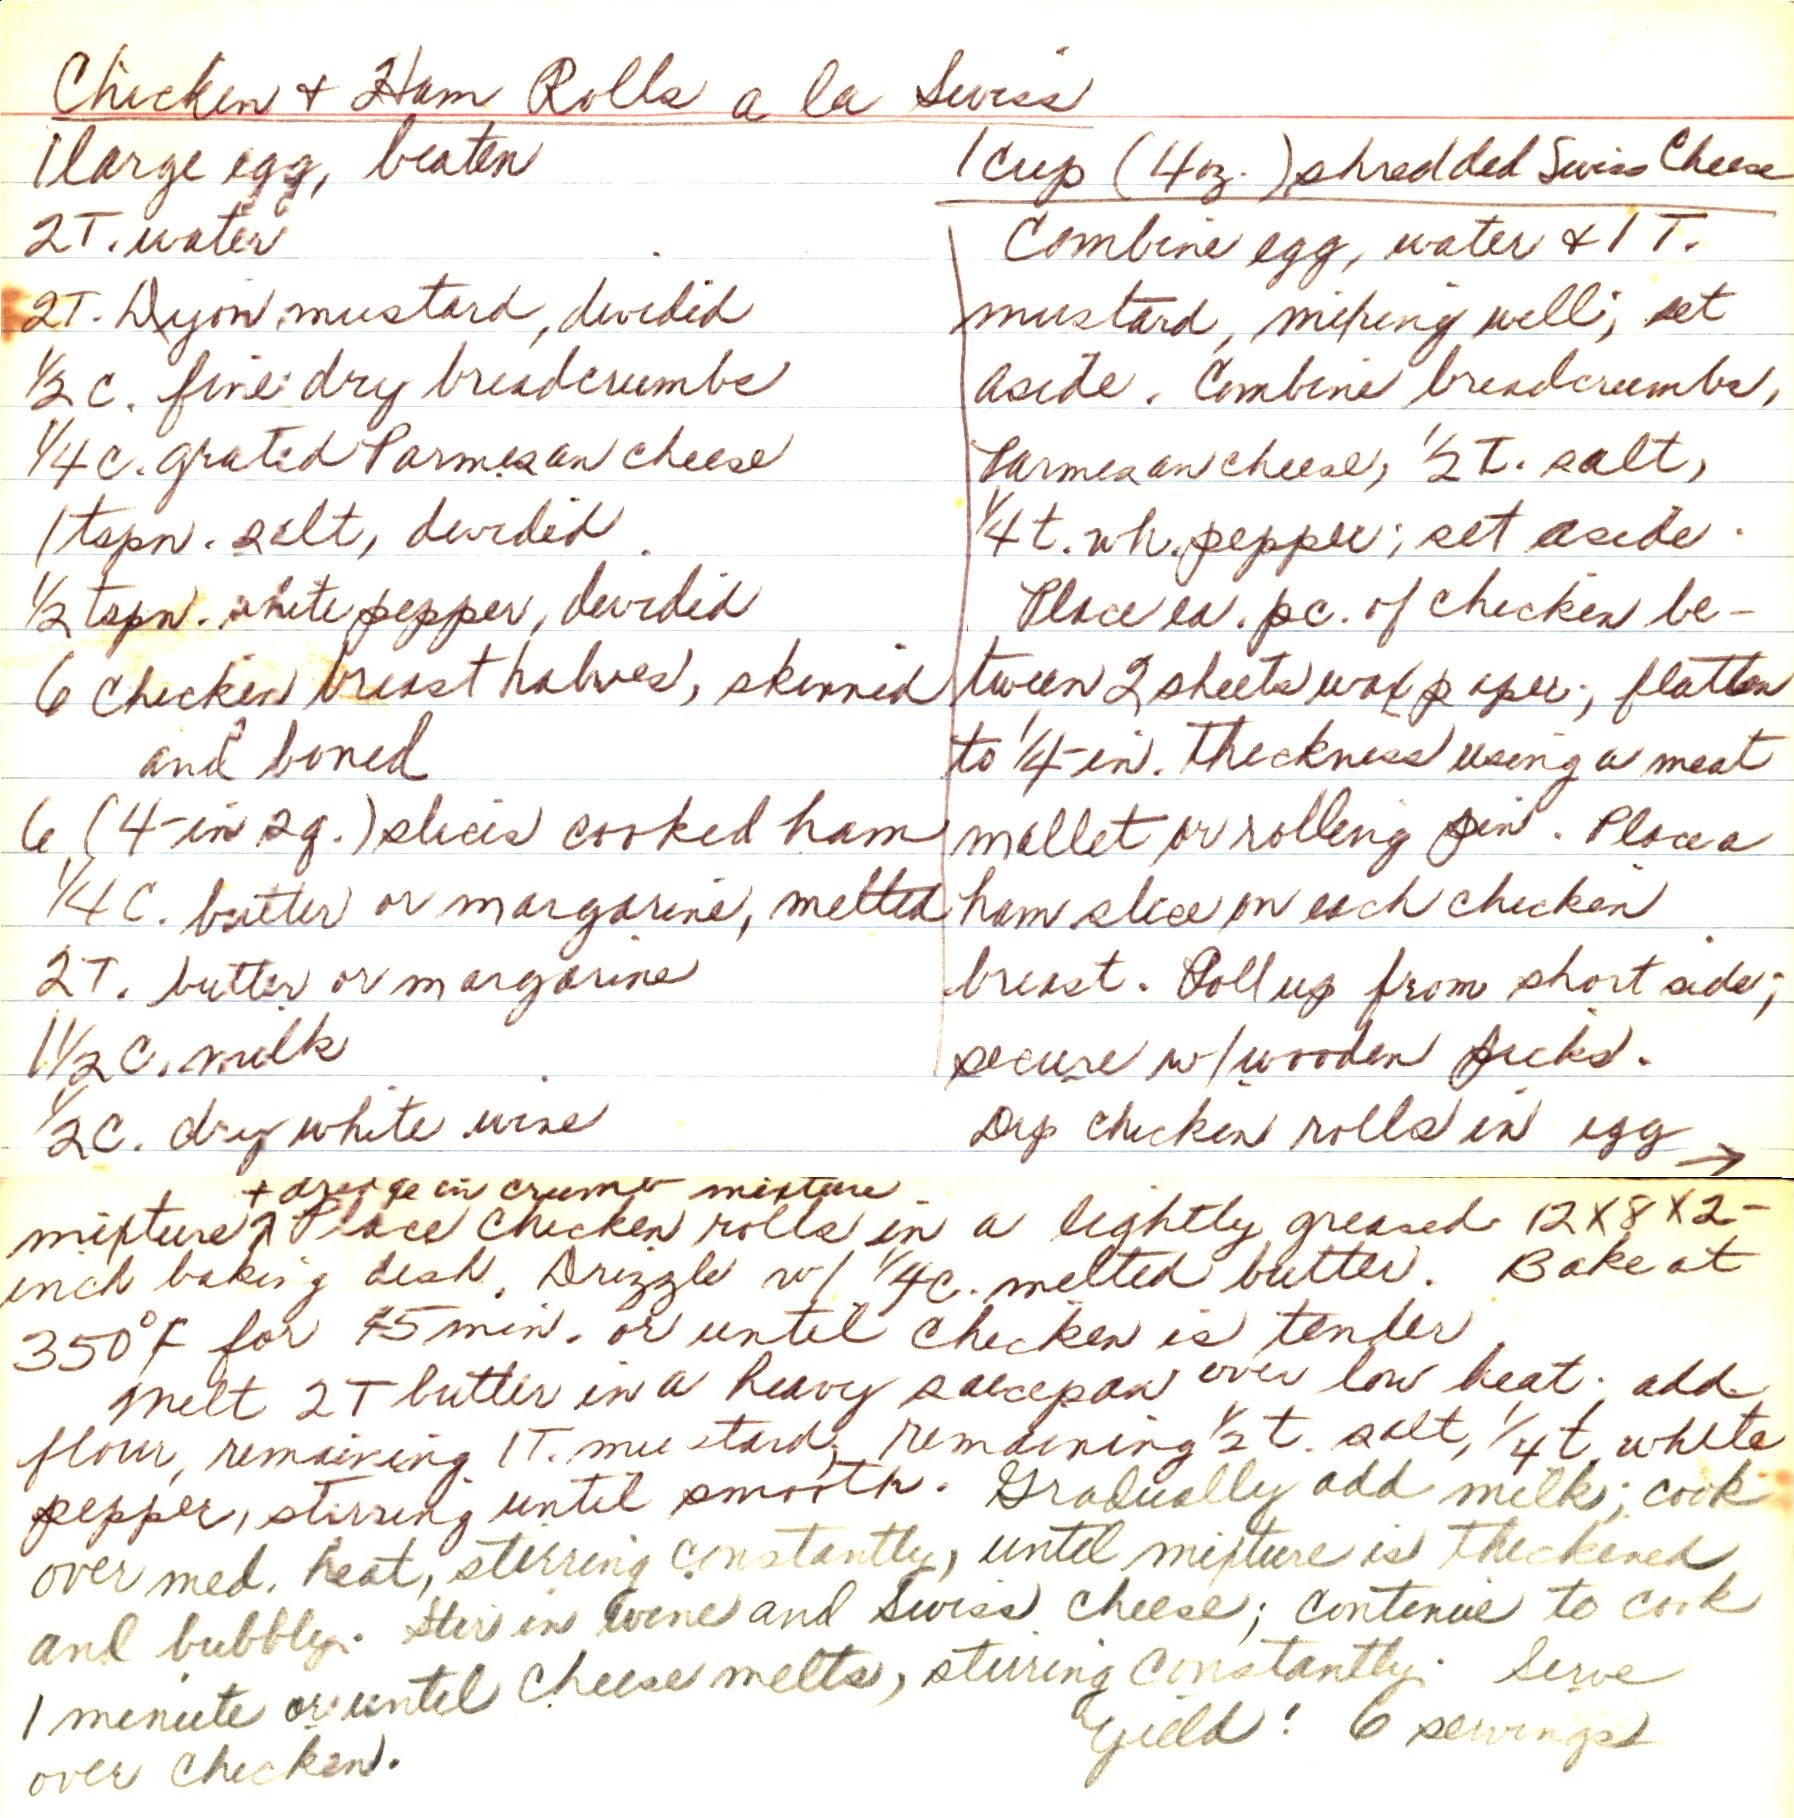 Chicken + Ham Rolls a la Swiss
1 large egg, beaten
2 T. water
2T. Dijon mustard, divided
1/2 c. fine dry breadcrumbs
1/4 c. grated Parmesan cheese
1 tspn. salt, divided
1/2 tspn. white pepper, divided
6 chicken breast halves, skinned
and boned
6 (4-in sq.) slices cooked ham
1/4 C. butter or margarine, melted
2 T. butter or margarine
1 1/2 C. milk
1/2 C. dry white wine
1 cup (4 oz.) shredded Swiss Cheese
Combine egg, water & 1 T.
mustard, mixing well; set
aside. Combine breadcrumbs,
Parmesan cheese, 1/2 t. salt,
1/4 t. wh. pepper; set aside.
Place ea. pc. of chicken be-
tween 2 sheets wax paper; flatten
to 1/4-in. thickness using a meat
mallet or rolling pin. Place a
ham slice on each chicken
breast. Roll up from short side;
secure w/ wooden picks.
Dip chicken rolls in egg →
+ dredge in crumb mixture
mixture. Place chicken rolls in a lightly greased 12X8X2-
inch baking dish. Drizzle w/ 1/4 c. melted butter. Bake at
350°F for 45 min. or until chicken is tender.
Melt 2 T butter in a heavy saucepan over low heat; add
flour, remaining 1 T. mustard, remaining 1/2 t. salt, 1/4 t. white
pepper, stirring until smooth. Gradually add milk; cook
over med. heat, stirring constantly, until mixture is thickened
and bubbly. Stir in wine and Swiss cheese; continue to cook
1 minute or until cheese melts, stirring constantly. Serve
over chicken.
Yield: 6 servings